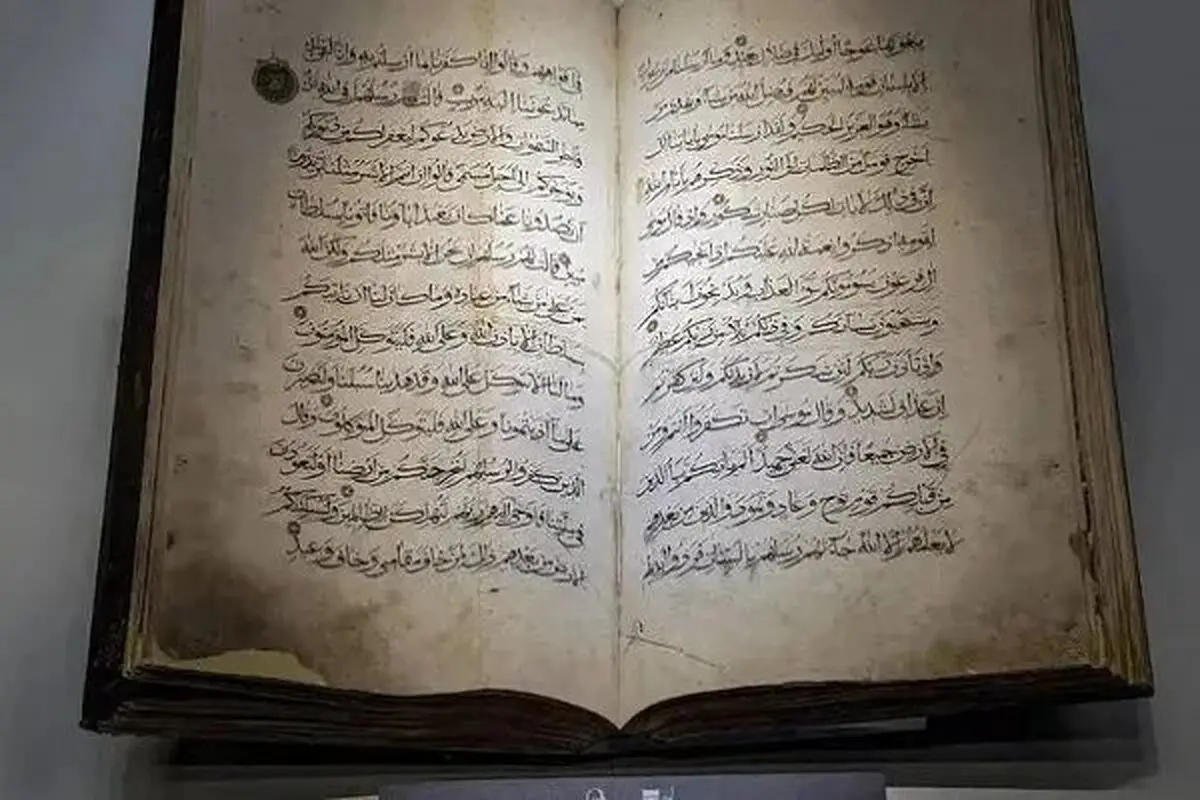 يبغونها عوجا اولئك في ضلال بعيد وما ارسلنا من رسول
الا بلسان قومه ليبين لهم فيضل الله من يشاء ويهدي من
يشاء وهو العزيز الحكيم ولقد ارسلنا موسى باياتنا ان
اخرج قومك من الظلمات الى النور وذكرهم بايام الله
ان في ذلك لايات لكل صبار شكور واذ قال موسى
لقومه اذكروا نعمة الله عليكم اذ انجيكم من
ال فرعون يسومونكم سوء العذاب ويذبحون ابناءكم
ويستحيون نساءكم وفي ذلكم بلاء من ربكم عظيم
واذ تاذن ربكم لئن شكرتم لازيدنكم ولئن كفرتم
ان عذابي لشديد وقال موسى ان تكفروا انتم ومن
في الارض جميعا فان الله لغني حميد الم ياتكم نبا الذين
من قبلكم قوم نوح وعاد وثمود والذين من بعدهم
لا يعلمهم الا الله جاءتهم رسلهم بالبينات فردوا ايديهم
في افواههم وقالوا انا كفرنا بما ارسلتم به وانا لفي شك
مما تدعوننا اليه مريب قالت رسلهم افي الله شك
فاطر السموات والارض يدعوكم ليغفر لكم من ذنوبكم
ويؤخركم الى اجل مسمى قالوا ان انتم الا بشر مثلنا تريدون
ان تصدونا عما كان يعبد اباؤنا فاتونا بسلطان
مبين قالت لهم رسلهم ان نحن الا بشر مثلكم ولكن الله
يمن على من يشاء من عباده وما كان لنا ان ناتيكم
بسلطان الا باذن الله وعلى الله فليتوكل المؤمنون
وما لنا الا نتوكل على الله وقد هدينا سبلنا ولنصبرن
على ما اذيتمونا وعلى الله فليتوكل المتوكلون وقال
الذين كفروا لرسلهم لنخرجنكم من ارضنا او لتعودن
في ملتنا فاوحى اليهم ربهم لنهلكن الظالمين ولنسكننكم
الارض من بعدهم ذلك لمن خاف مقامي وخاف وعيد